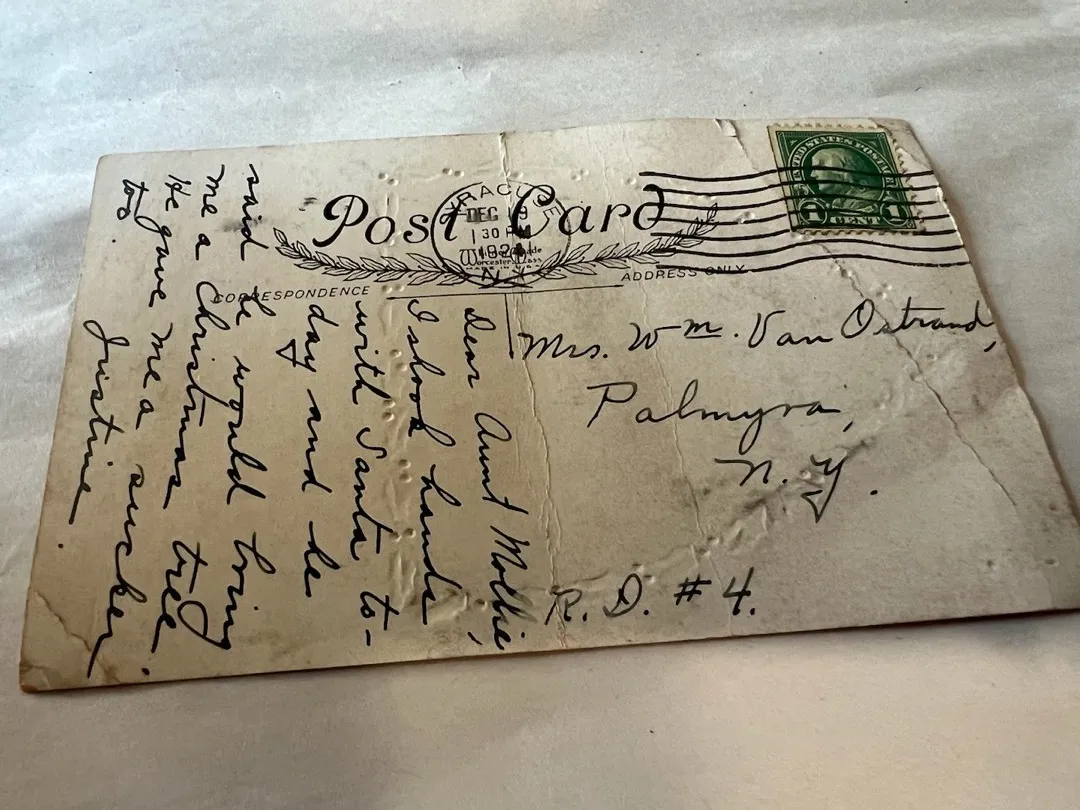 Post Card
SYRACUSE
DEC 19
1 30 PM
N.Y.
UNITED STATES POSTAGE
1 CENT 1
CORRESPONDENCE
ADDRESS ONLY
Worcester, Mass
MADE IN U.S.A.
Dear Aunt Mollie,
I shook hands
with Santa to-
day and he
said he would bring
me a Christmas tree.
He gave me a sucker
too
Justine.
Mrs. Wm. Van Ostrand,
Palmyra,
N.Y.
R. D. # 4.